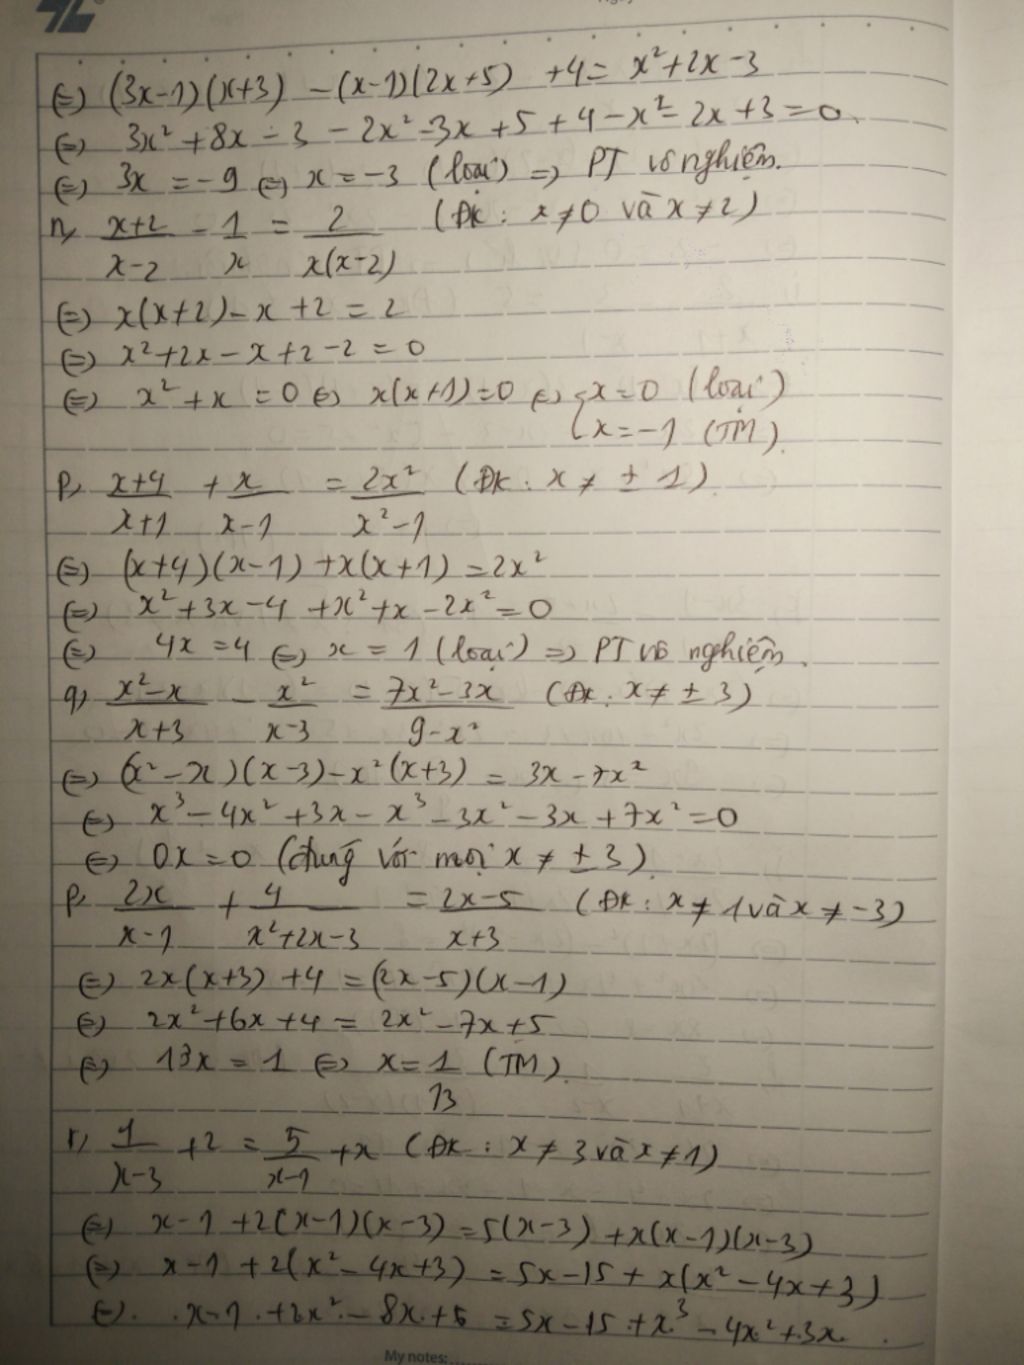 ⇔ (3x-1)(x+3) - (x-1)(2x+5) + 4 = x² + 2x - 3
⇔ 3x² + 8x - 3 - 2x² - 3x + 5 + 4 - x² - 2x + 3 = 0
⇔ 3x = -9 ⇔ x = -3 (loại) ⇒ PT vô nghiệm.
n, (x+2)/(x-2) - 1/x = 2/(x(x-2)) (ĐK: x ≠ 0 và x ≠ 2)
⇔ x(x+2) - x + 2 = 2
⇔ x² + 2x - x + 2 - 2 = 0
⇔ x² + x = 0 ⇔ x(x+1) = 0 ⇔ x = 0 (loại)
x = -1 (TM)
p, (x+4)/(x+1) + x/(x-1) = 2x²/(x²-1) (ĐK: x ≠ ± 1)
⇔ (x+4)(x-1) + x(x+1) = 2x²
⇔ x² + 3x - 4 + x² + x - 2x² = 0
⇔ 4x = 4 ⇔ x = 1 (loại) ⇒ PT vô nghiệm.
q, (x²-x)/(x+3) - x²/(x-3) = (7x²-3x)/(9-x²) (ĐK: x ≠ ± 3)
⇔ (x² - x)(x-3) - x²(x+3) = 3x - 7x²
⇔ x³ - 4x² + 3x - x³ - 3x² - 3x + 7x² = 0
⇔ 0x = 0 (đúng với mọi x ≠ ± 3)
p, 2x/(x-1) + 4/(x²+2x-3) = (2x-5)/(x+3) (ĐK: x ≠ 1 và x ≠ -3)
⇔ 2x(x+3) + 4 = (2x-5)(x-1)
⇔ 2x² + 6x + 4 = 2x² - 7x + 5
⇔ 13x = 1 ⇔ x = 1/13 (TM)
r, 1/(x-3) + 2 = 5/(x-1) + x (ĐK: x ≠ 3 và x ≠ 1)
⇔ x - 1 + 2(x-1)(x-3) = 5(x-3) + x(x-1)(x-3)
⇔ x - 1 + 2(x² - 4x + 3) = 5x - 15 + x(x² - 4x + 3)
⇔ x - 1 + 2x² - 8x + 6 = 5x - 15 + x³ - 4x² + 3x
My notes: